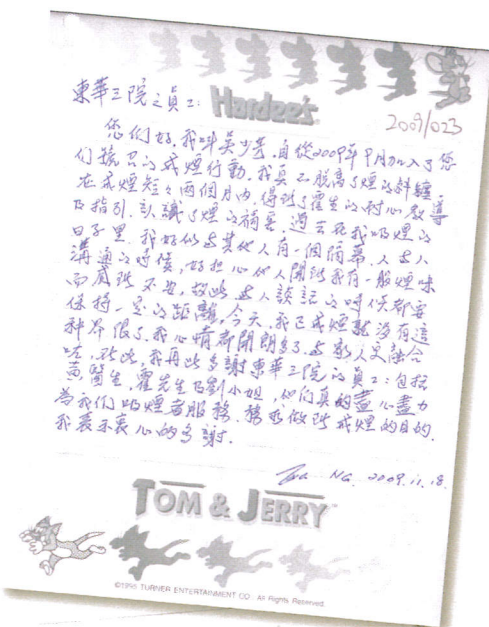 Hardee's
2009/023
東華三院之員工:
您們好,我叫吳少芳,自從2009年9月加入了您
們號召的戒煙行動,我真正脫離了煙的糾纏,
在戒煙短短兩個月內,得到了霍生的耐心教導
及指引,認識了煙的禍害,過去在我吸煙的
日子里,我好似与其他人有一個隔幕,人与人
溝通的時候,好担心他人聞到我有一般煙味
而感到不安,故此与人談話的時候都要
保持一定的距離,今天,我已戒煙就沒有這
种界限了,我心情都開朗多了,与家人更融合
在此,我再此多謝東華三院的員工:包括
黃醫生,霍先生及劉小姐,他們真的盡心盡力
為我們吸煙者服務,務求做到戒煙的目的.
我表示衷心的多謝.
NG 2009.11.18.
TOM & JERRY
©1995 TURNER ENTERTAINMENT CO. All Rights Reserved